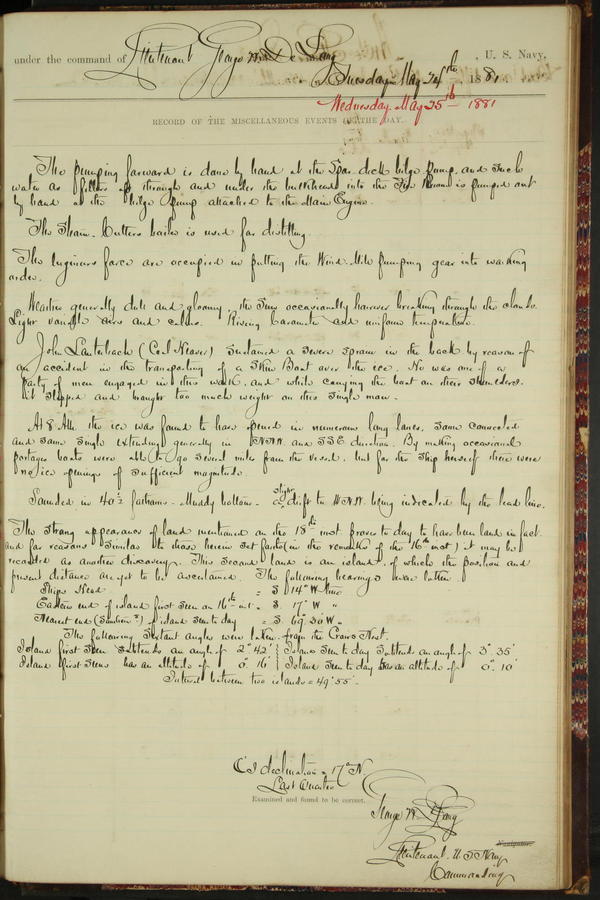 under the command of Lieutenant George W. De Long , U. S. Navy,
Tuesday May 24th , 1881.
Wednesday May 25th 1881
RECORD OF THE MISCELLANEOUS EVENTS OF THE DAY.
The pumping forward is done by hand at the Spar deck bilge pump, and such
water as filters through and under the bulkhead into the Fire Room is pumped out
by hand at the bilge pump attached to the Main Engine.
The Steam Cutters boiler is used for distilling.
The Engineers force are occupied in putting the Wind Mill pumping gear into working
order.
Weather generally dull and gloomy, the sun occasionally however breaking through the clouds.
Light variable airs and calms. Rising barometer and uniform temperature.
John Lauterbach (Coal Heaver) sustained a severe sprain in the back by reason of
an accident in the transporting of a Skin Boat over the ice. He was one of a
party of men engaged in this work, and while carrying the boat on their shoulders
it slipped and brought too much weight on this single man.
At 8 AM the ice was found to have opened in numerous long lanes, some connected
and some single extending generally in NNW and SSE direction. By making occasional
portages boats were able to go several miles from the vessel, but for the ship herself there were
no ice openings of sufficient magnitude.
Sounded in 40½ fathoms - Muddy bottom - a slight drift to WNW being indicated by the lead line.
The strong appearance of land mentioned on the 18th inst proves to day to have been land in fact
and for reasons similar to those herein set forth (in the remarks of the 16th inst) it may be
recorded as another discovery. This second land is an island, of which the position and
present distance are yet to be ascertained. The following bearings were taken.
Ships Head = S 14° W true
Eastern end of island first seen on 16th inst = S. 17° W "
Nearest end (Southern?) of island seen to day = S. 69. 30 W "
The following Sextant angles were taken from the Crows Nest.
Island first seen subtends an angle of 2° 42' } Island seen to day subtends an angle of 3° 35'
Island first seen has an altitude of 0° 16' } Island seen to day has an altitude of 0° 10'
Interval between two islands = 49° 55'.
C's declination = 17° N.
Last Quarter
Examined and found to be correct.
George W. De Long
Navigator.
Lieutenant. U S Navy
Commanding